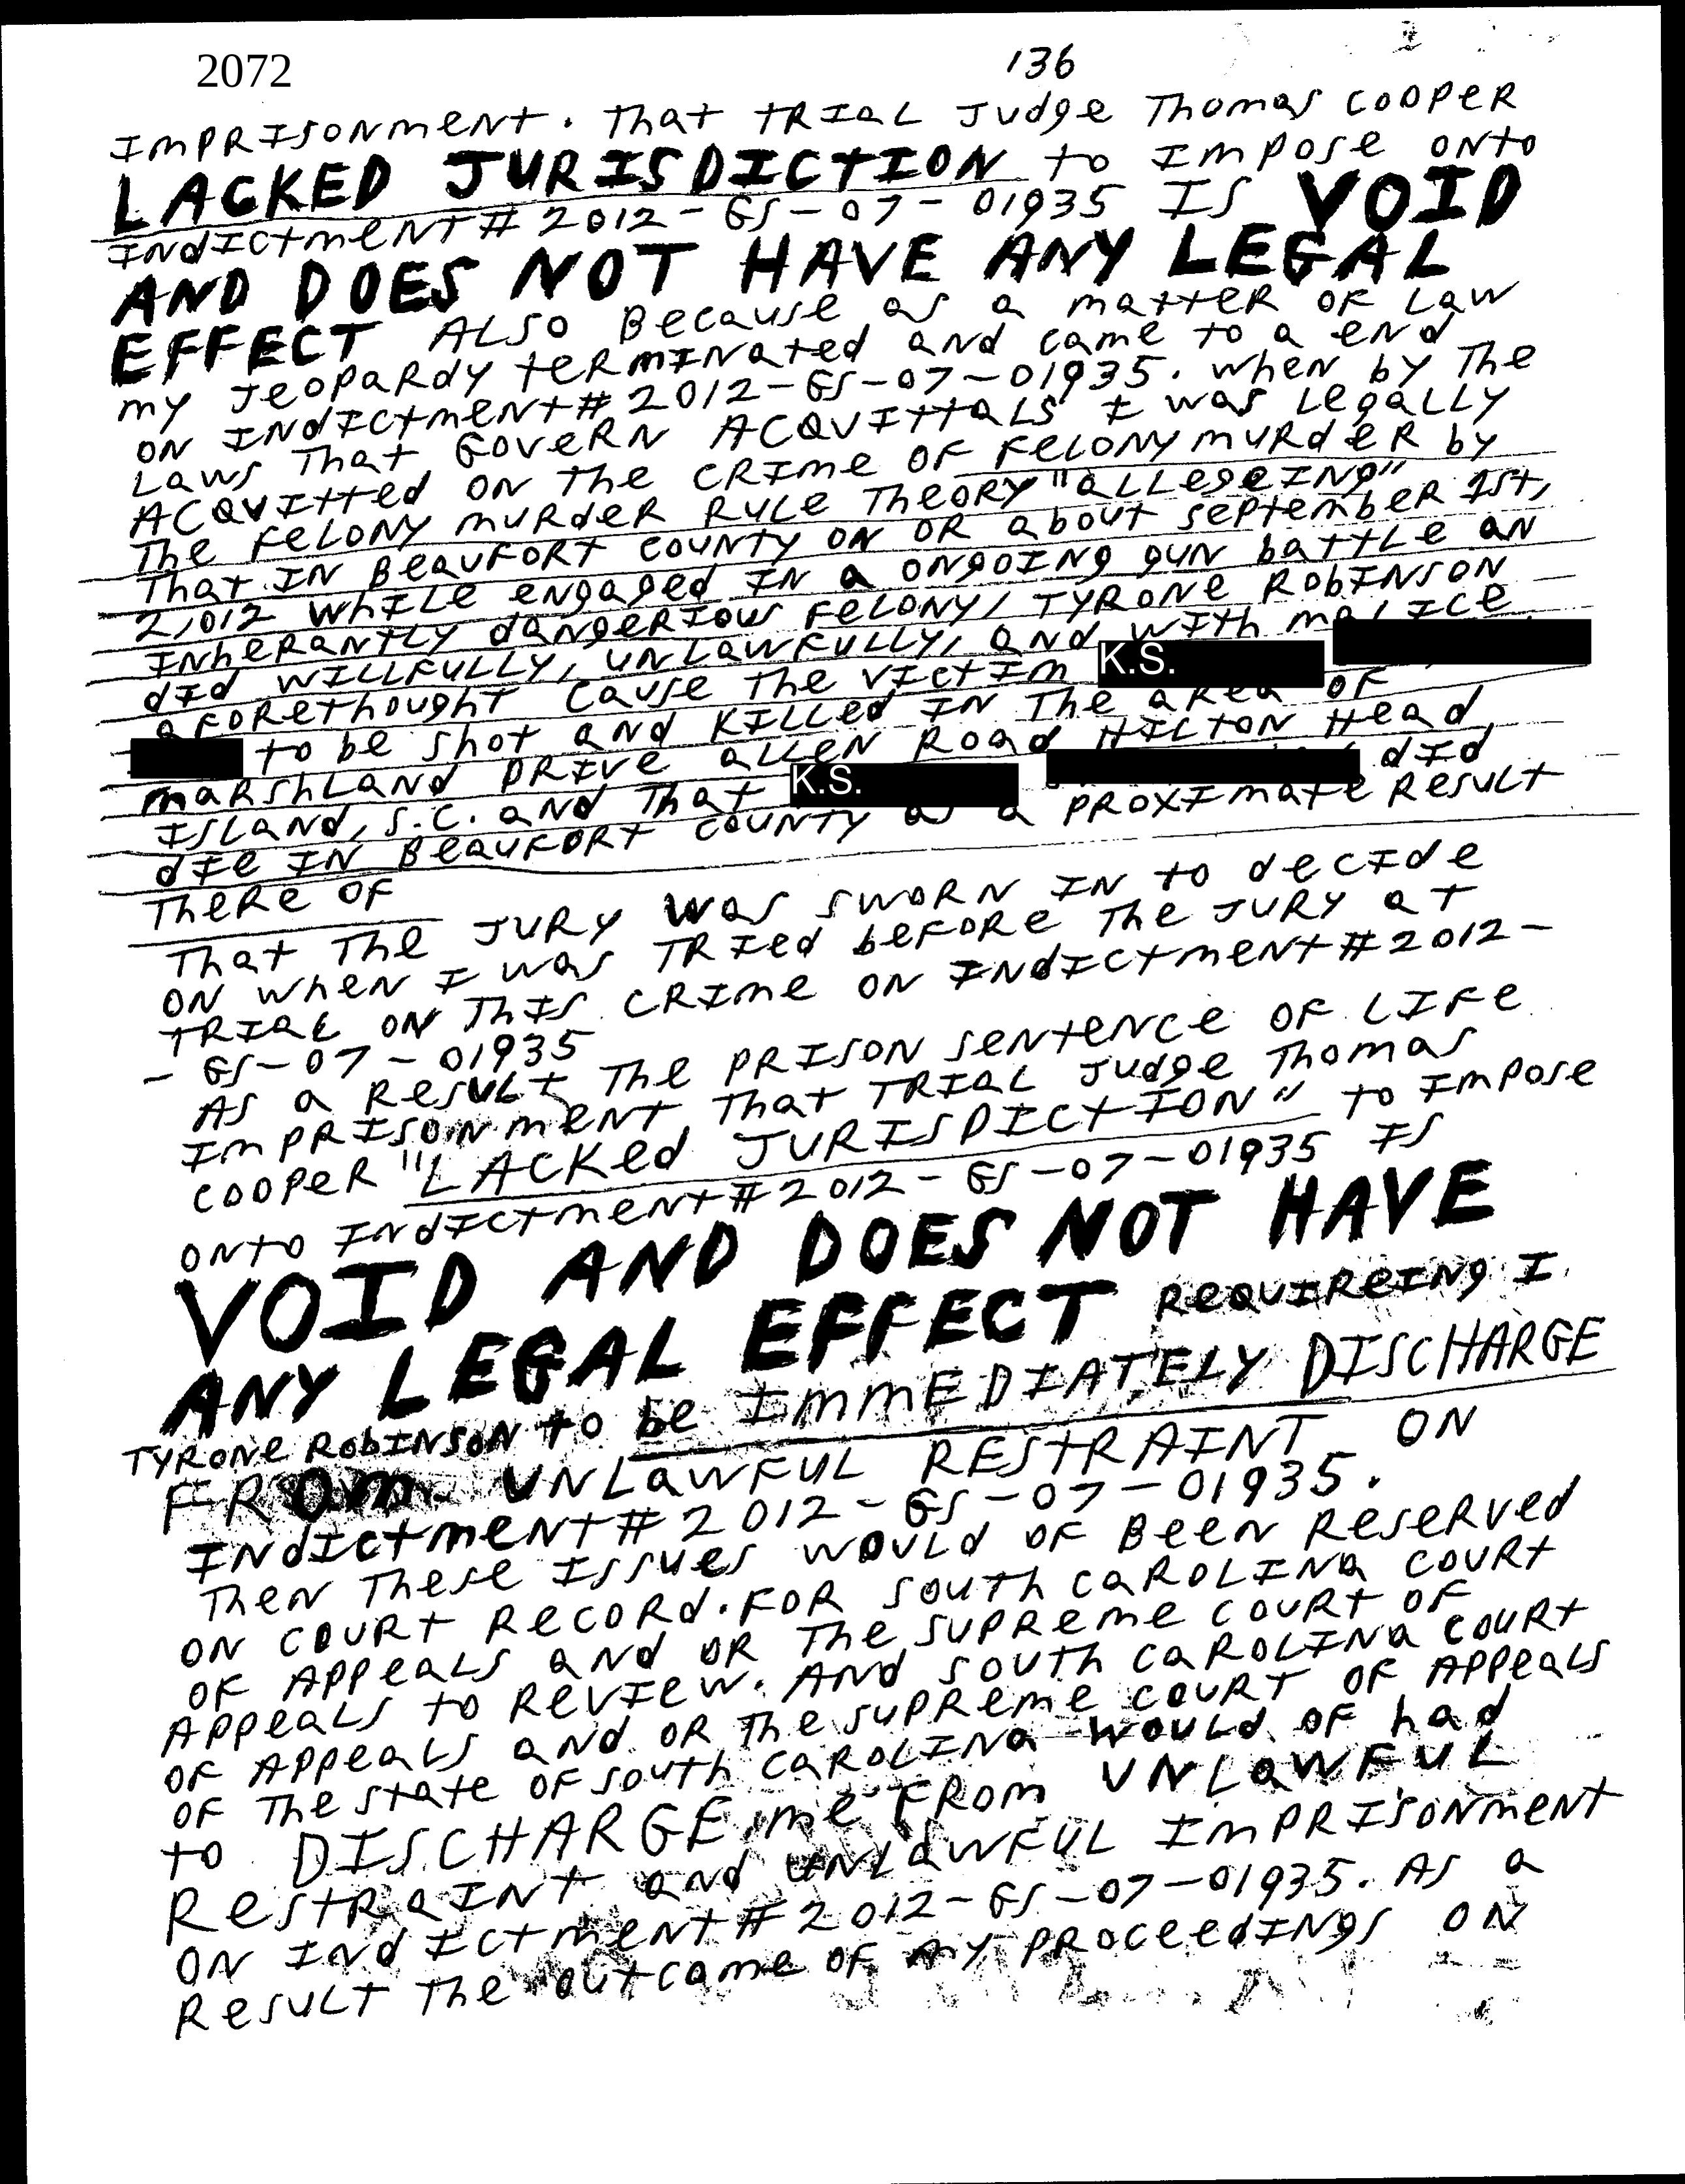 2072
136
IMPRISONMENT. That TRIAL Judge Thomas COOPER
LACKED JURISDICTION to IMPOSE ONTO
INDICTMENT# 2012-GS-07-01935 IS VOID
AND DOES NOT HAVE ANY LEGAL
EFFECT ALSO Because as a matteR OF Law
my Jeopardy terminated and came to a end
ON INDICTMENT# 2012-GS-07-01935. when by The
Laws That GOVERN ACQUITTALS I was Legally
ACQUITTED ON THE CRIME OF FELONY MURDER by
The FELONY MURDER RULE Theory "ALLegeING"
That IN BeauFORT COUNTY ON OR about september 1st,
2,012 WhILe engaged IN a ongoing gun battle an
INherantly dangerious FeLONY, TYRONE RobINSON
did WILLFULLY, UNLawFULLY, and with malice
aForethought Cause The VICTIM K.S.
to be shot and KILLed IN The area OF
MARSHLAND DRIVE aLLeN Road HILTON Head
ISLAND, S.C. and That K.S. did
die IN BeauFORT COUNTY as a PROXImate ResuLt
TheRe OF
That The JURY was SWORN IN to decide
ON when I was TRIed beFORe The JURY at
TRIAL ON THIS CRIME ON INDICTMENT# 2012-
- GS-07-01935
As a ResuLt The PRISON SeNteNCe OF LIFe
ImPRISONMeNt That TRIAL Judge Thomas
COOPeR "LACKed JURISDICTION" to ImPose
ONTO INDICTMENT# 2012-GS-07-01935 IS
VOID AND DOES NOT HAVE
ANY LEGAL EFFECT ReQUIReING I
TYRONe RobINSON to be IMMEDIATELY DISCHARGE
FROM UNLawFUL RESTRAINT ON
INDICTMENT# 2012-GS-07-01935.
Then These ISSues WOULd OF BeeN Reserved
ON COURt RecORd. FOR SOUTh CAROLINa COURt
OF APPeaLS and OR The SUPReme COURt OF
APPeaLS to ReVIew. AND SOUTh CAROLINa COURt
OF APPeaLS and OR The SUPReme COURT OF APPeaLS
OF The State OF SOUTh CAROLINa WOULd OF had
to DISCHARGE me FROM UNLawFUL
RestRaINt and UNLawFUL ImPRISONmeNt
ON INDICTMENT# 2012-GS-07-01935. AS a
ResuLt The outcome OF my PROCeedINgs ON